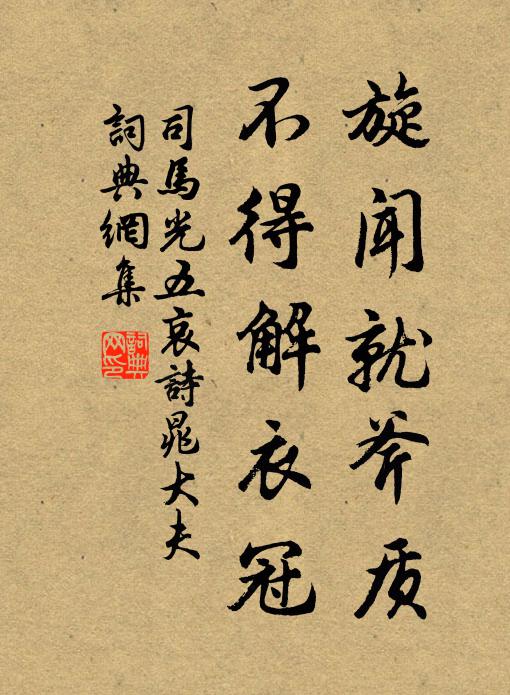 旋聞就斧质
不得解衣冠
司馬光五哀詩晁大夫
詞典網集
詞典网印